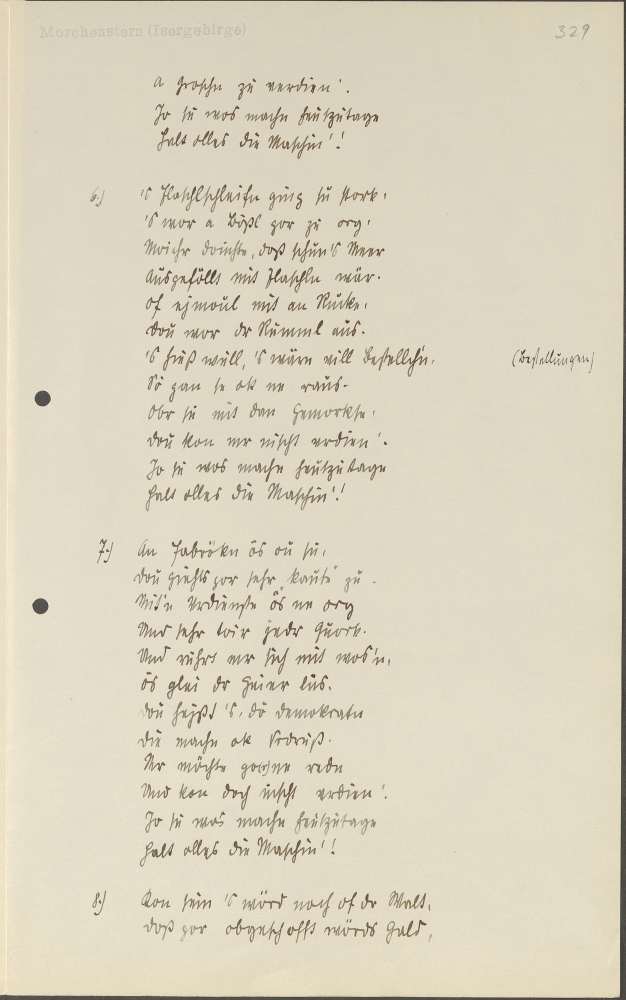 Morchenstern (Isergebirge)
329
a Groschn zu verdien'.
Jo su wos machn heutzutage
halt olles die Maschin'!
6.) 's Flaschlschleifn ging su stork,
's wor a bößl gor zu org,
Moichr doichte, doß schun 's Meer
Ausgeföllt mit Flaschln wär.
Of ejmoul mit an Rucke,
dou wor dr Rumml aus.
's hieß wull, 's wärn vill Bestellch'n, (Bestellungen)
Sö gan se ok ne raus.
Obr su mit dan Gemorkse,
dou kon mr nischt verdien'.
Jo su wos machn heutzutage
halt olles die Maschin'!
7.) An Fabrökn ös ou su,
dou giehts gor sehr "kauté" zu.
Mit'n Verdienste ös ne org
Und sehr toir jedr Quork.
Und rührt mr sich mit wos'n,
ös glei dr Geier lus.
dou hejßt 's, dö Demokratn
die machn ok Verdruß.
Mr möchte ne redn
Und kon doch nischt verdien'.
Jo su wos machn heutzutage
halt olles die Maschin'!
8.) Kon sein 's wörd noch of dr Walt,
doß gor obgeschofft wörds Gald,